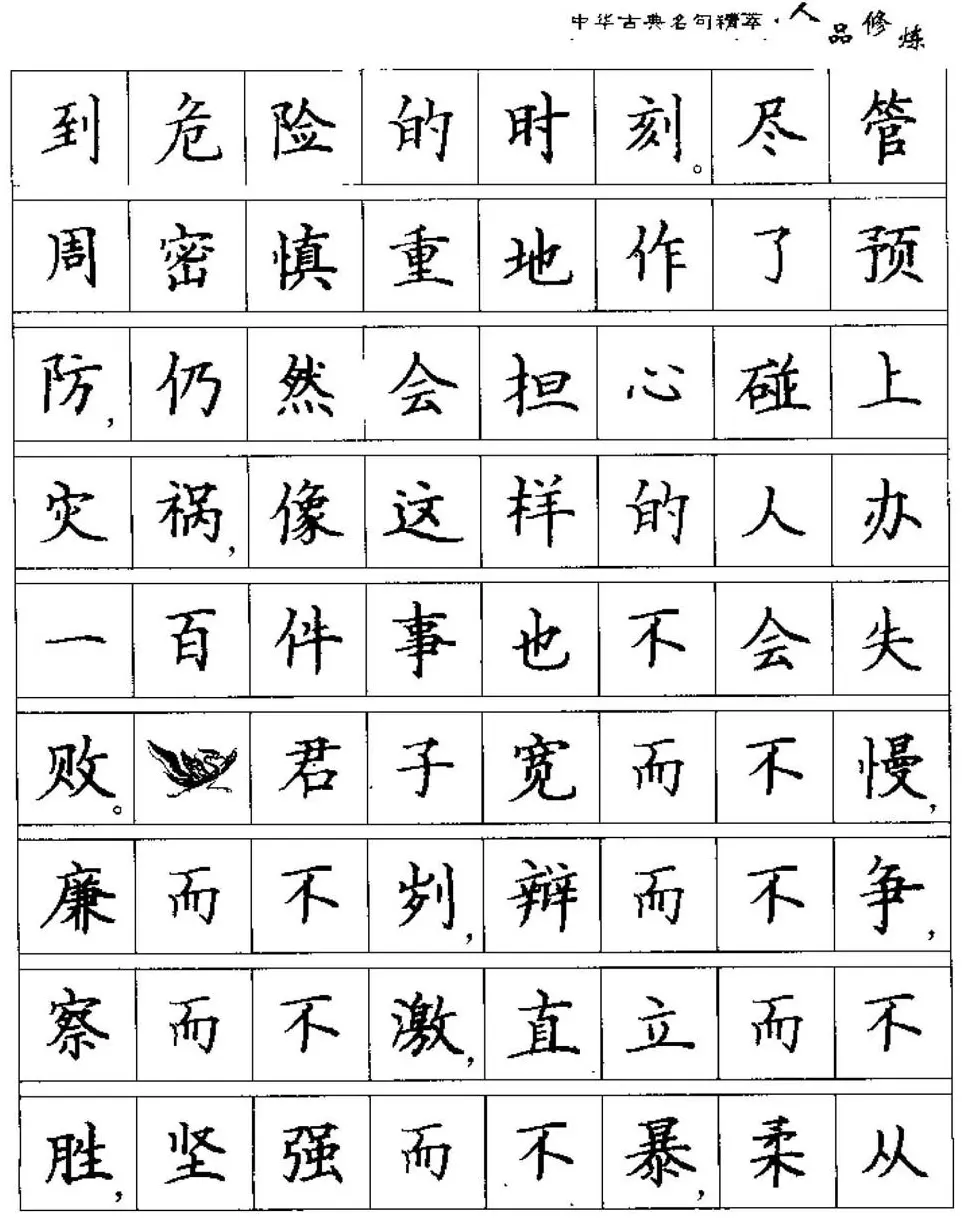 中华古典名句精萃·人品修炼
到危险的时刻。尽管
周密慎重地作了预
防,仍然会担心碰上
灾祸,像这样的人办
一百件事也不会失
败。君子宽而不慢,
廉而不刿,辩而不争,
察而不激,直立而不
胜,坚强而不暴,柔从